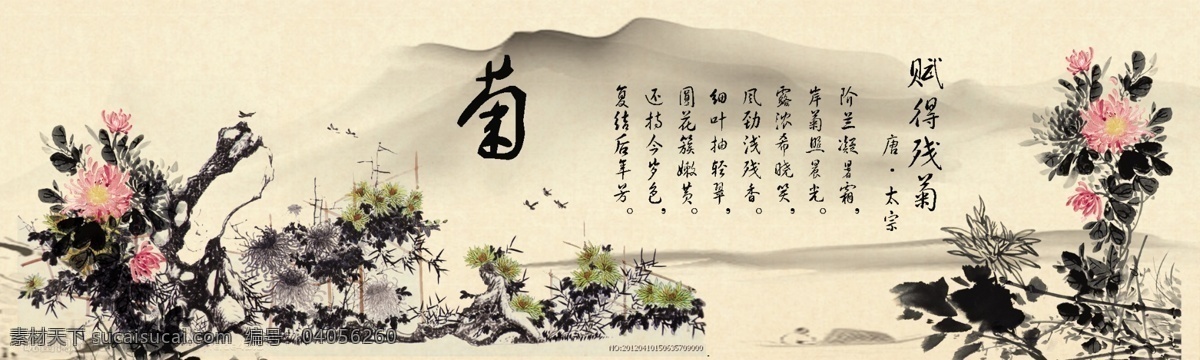 赋得残菊
唐·太宗
阶兰凝暑霜，
岸菊照晨光。
露浓希晓笑，
风劲浅残香。
细叶抽轻翠，
圆花簇嫩黄。
还持今岁色，
复结后年芳。
菊
素材天下 sucaisucai.com 编号：04056260
NO:20120410150635709000